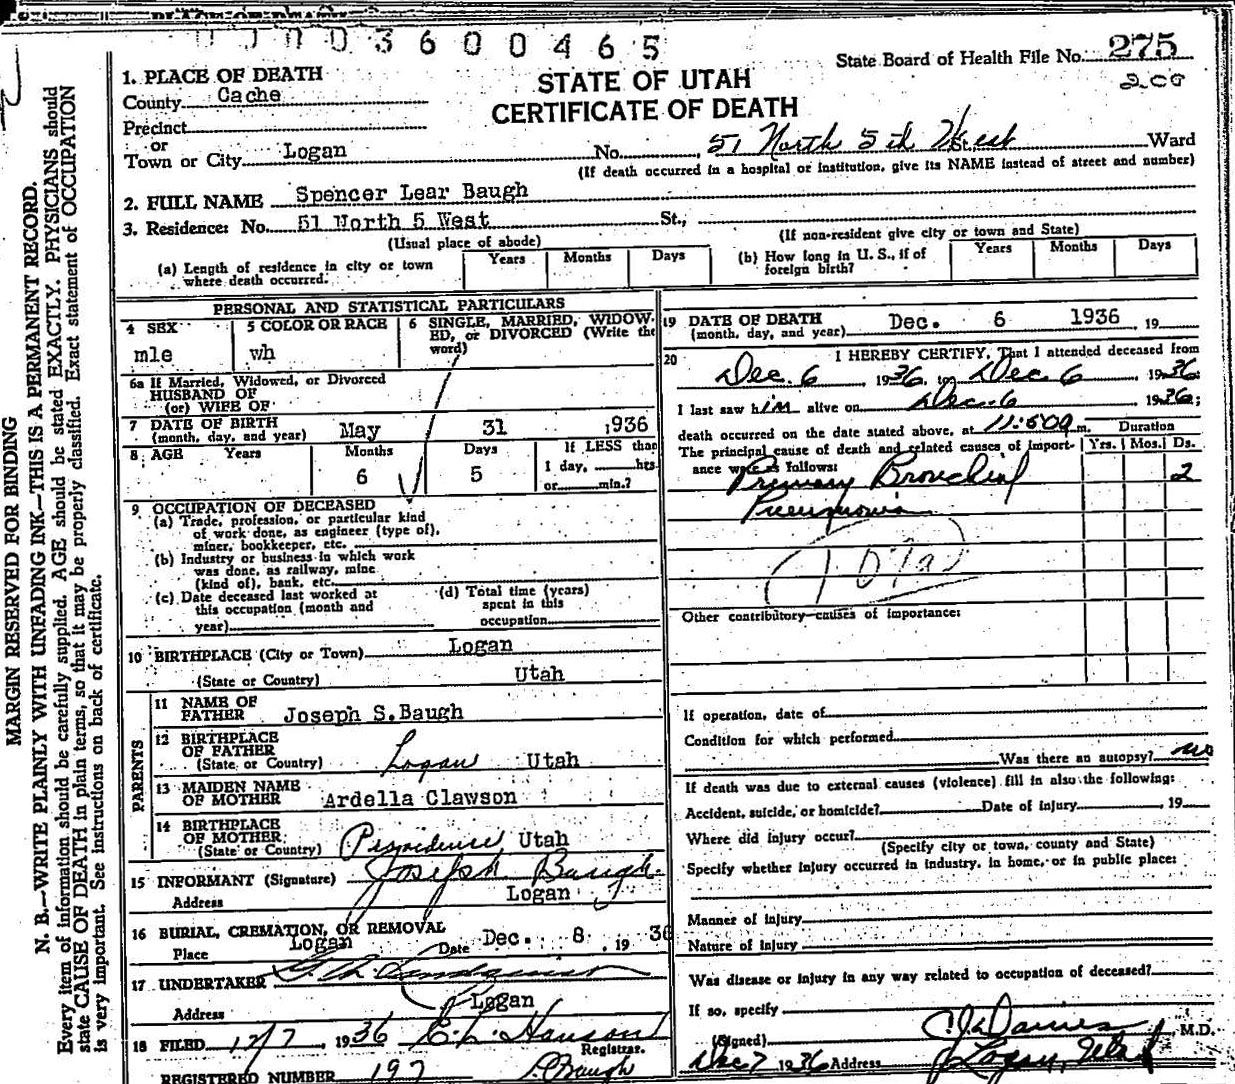 0 0 0 3 6 0 0 4 6 5
State Board of Health File No. 275
200
STATE OF UTAH
CERTIFICATE OF DEATH
MARGIN RESERVED FOR BINDING
N. B.—WRITE PLAINLY WITH UNFADING INK—THIS IS A PERMANENT RECORD.
Every item of information should be carefully supplied. AGE should be stated EXACTLY. PHYSICIANS should
state CAUSE OF DEATH in plain terms, so that it may be properly classified. Exact statement of OCCUPATION
is very important. See instructions on back of certificate.
1. PLACE OF DEATH
County Cache
Precinct
or
Town or City Logan No. 51 North 5th West St. Ward
(If death occurred in a hospital or institution, give its NAME instead of street and number)
2. FULL NAME Spencer Lear Baugh
3. Residence: No. 51 North 5 West St.,
(Usual place of abode) (If non-resident give city or town and State)
(a) Length of residence in city or town where death occurred. Years Months Days
(b) How long in U. S., if of foreign birth? Years Months Days
PERSONAL AND STATISTICAL PARTICULARS
4 SEX mle
5 COLOR OR RACE wh
6 SINGLE, MARRIED, WIDOWED, or DIVORCED (Write the word)
6a If Married, Widowed, or Divorced
HUSBAND OF
(or) WIFE OF
7 DATE OF BIRTH
(month, day, and year) May 31 ,936
8 AGE Years Months Days If LESS than
6 5 1 day, hrs
or min.?
9 OCCUPATION OF DECEASED
(a) Trade, profession, or particular kind
of work done, as engineer (type of),
miner, bookkeeper, etc.
(b) Industry or business in which work
was done, as railway, mine
(kind of), bank, etc.
(c) Date deceased last worked at
this occupation (month and
year)
(d) Total time (years)
spent in this
occupation
10 BIRTHPLACE (City or Town) Logan
(State or Country) Utah
PARENTS
11 NAME OF
FATHER Joseph S. Baugh
12 BIRTHPLACE
OF FATHER
(State or Country) Logan Utah
13 MAIDEN NAME
OF MOTHER Ardella Clawson
14 BIRTHPLACE
OF MOTHER
(State or Country) Providence Utah
15 INFORMANT (Signature) Joseph Baugh
Address Logan
16 BURIAL, CREMATION, OR REMOVAL
Place Logan Date Dec. 8, 19 36
17 UNDERTAKER
Address Logan
18 FILED 12/7 1936 E. L. Hanson
Registrar.
REGISTERED NUMBER 197 Baugh
19 DATE OF DEATH
(month, day, and year) Dec. 6 1936, 19
20 I HEREBY CERTIFY, That I attended deceased from
Dec. 6 1936, to Dec 6 1936
I last saw him alive on Dec. 6 1936;
death occurred on the date stated above, at 11:50 a m. Duration
The principal cause of death and related causes of import- Yrs. Mos. Ds.
ance were as follows:
Primary Bronchial 2
Pneumonia
107a
Other contributory causes of importance:
If operation, date of
Condition for which performed
Was there an autopsy? no
If death was due to external causes (violence) fill in also the following:
Accident, suicide, or homicide? Date of injury , 19
Where did injury occur?
(Specify city or town, county and State)
Specify whether injury occurred in industry, in home, or in public place:
Manner of injury
Nature of injury
Was disease or injury in any way related to occupation of deceased?
If so, specify
(Signed) M.D.
Dec 7 1936 Address Logan, Utah